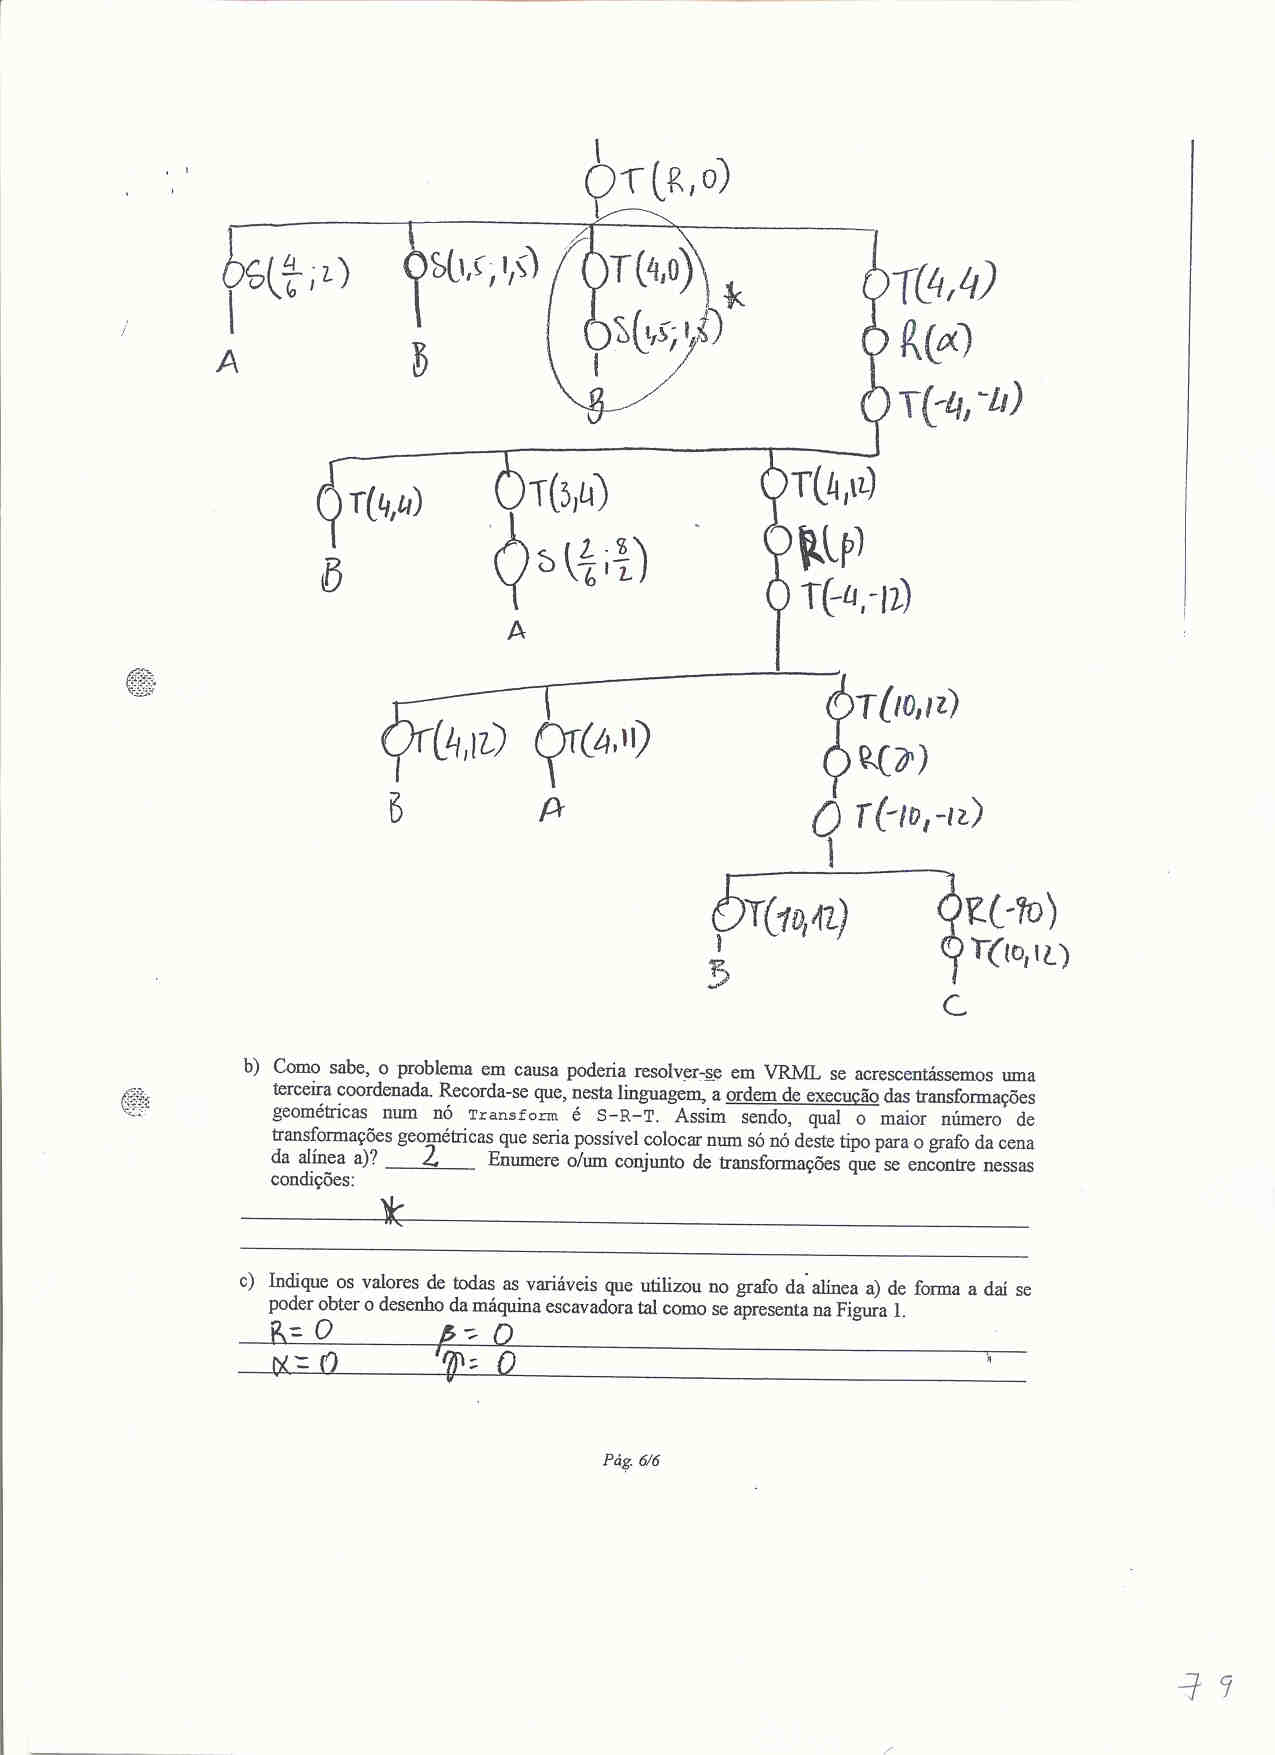 T(R,0)
S(4/6;2) S(1,5;1,5) T(4,0) T(4,4)
S(1,5;1,5) * R(α)
A B B T(-4,-4)
T(4,4) T(3,4) T(4,12)
S(2/6;8/2) R(β)
B A T(-4,-12)
T(4,12) T(4,11) T(10,12)
R(γ)
B A T(-10,-12)
T(10,12) R(-90)
T(10,12)
B C
b) Como sabe, o problema em causa poderia resolver-se em VRML se acrescentássemos uma
terceira coordenada. Recorda-se que, nesta linguagem, a ordem de execução das transformações
geométricas num nó Transform é S-R-T. Assim sendo, qual o maior número de
transformações geométricas que seria possível colocar num só nó deste tipo para o grafo da cena
da alínea a)? 2 Enumere o/um conjunto de transformações que se encontre nessas
condições:
*
c) Indique os valores de todas as variáveis que utilizou no grafo da alínea a) de forma a daí se
poder obter o desenho da máquina escavadora tal como se apresenta na Figura 1.
R=0 β=0
α=0 γ=0
Pág. 6/6
79